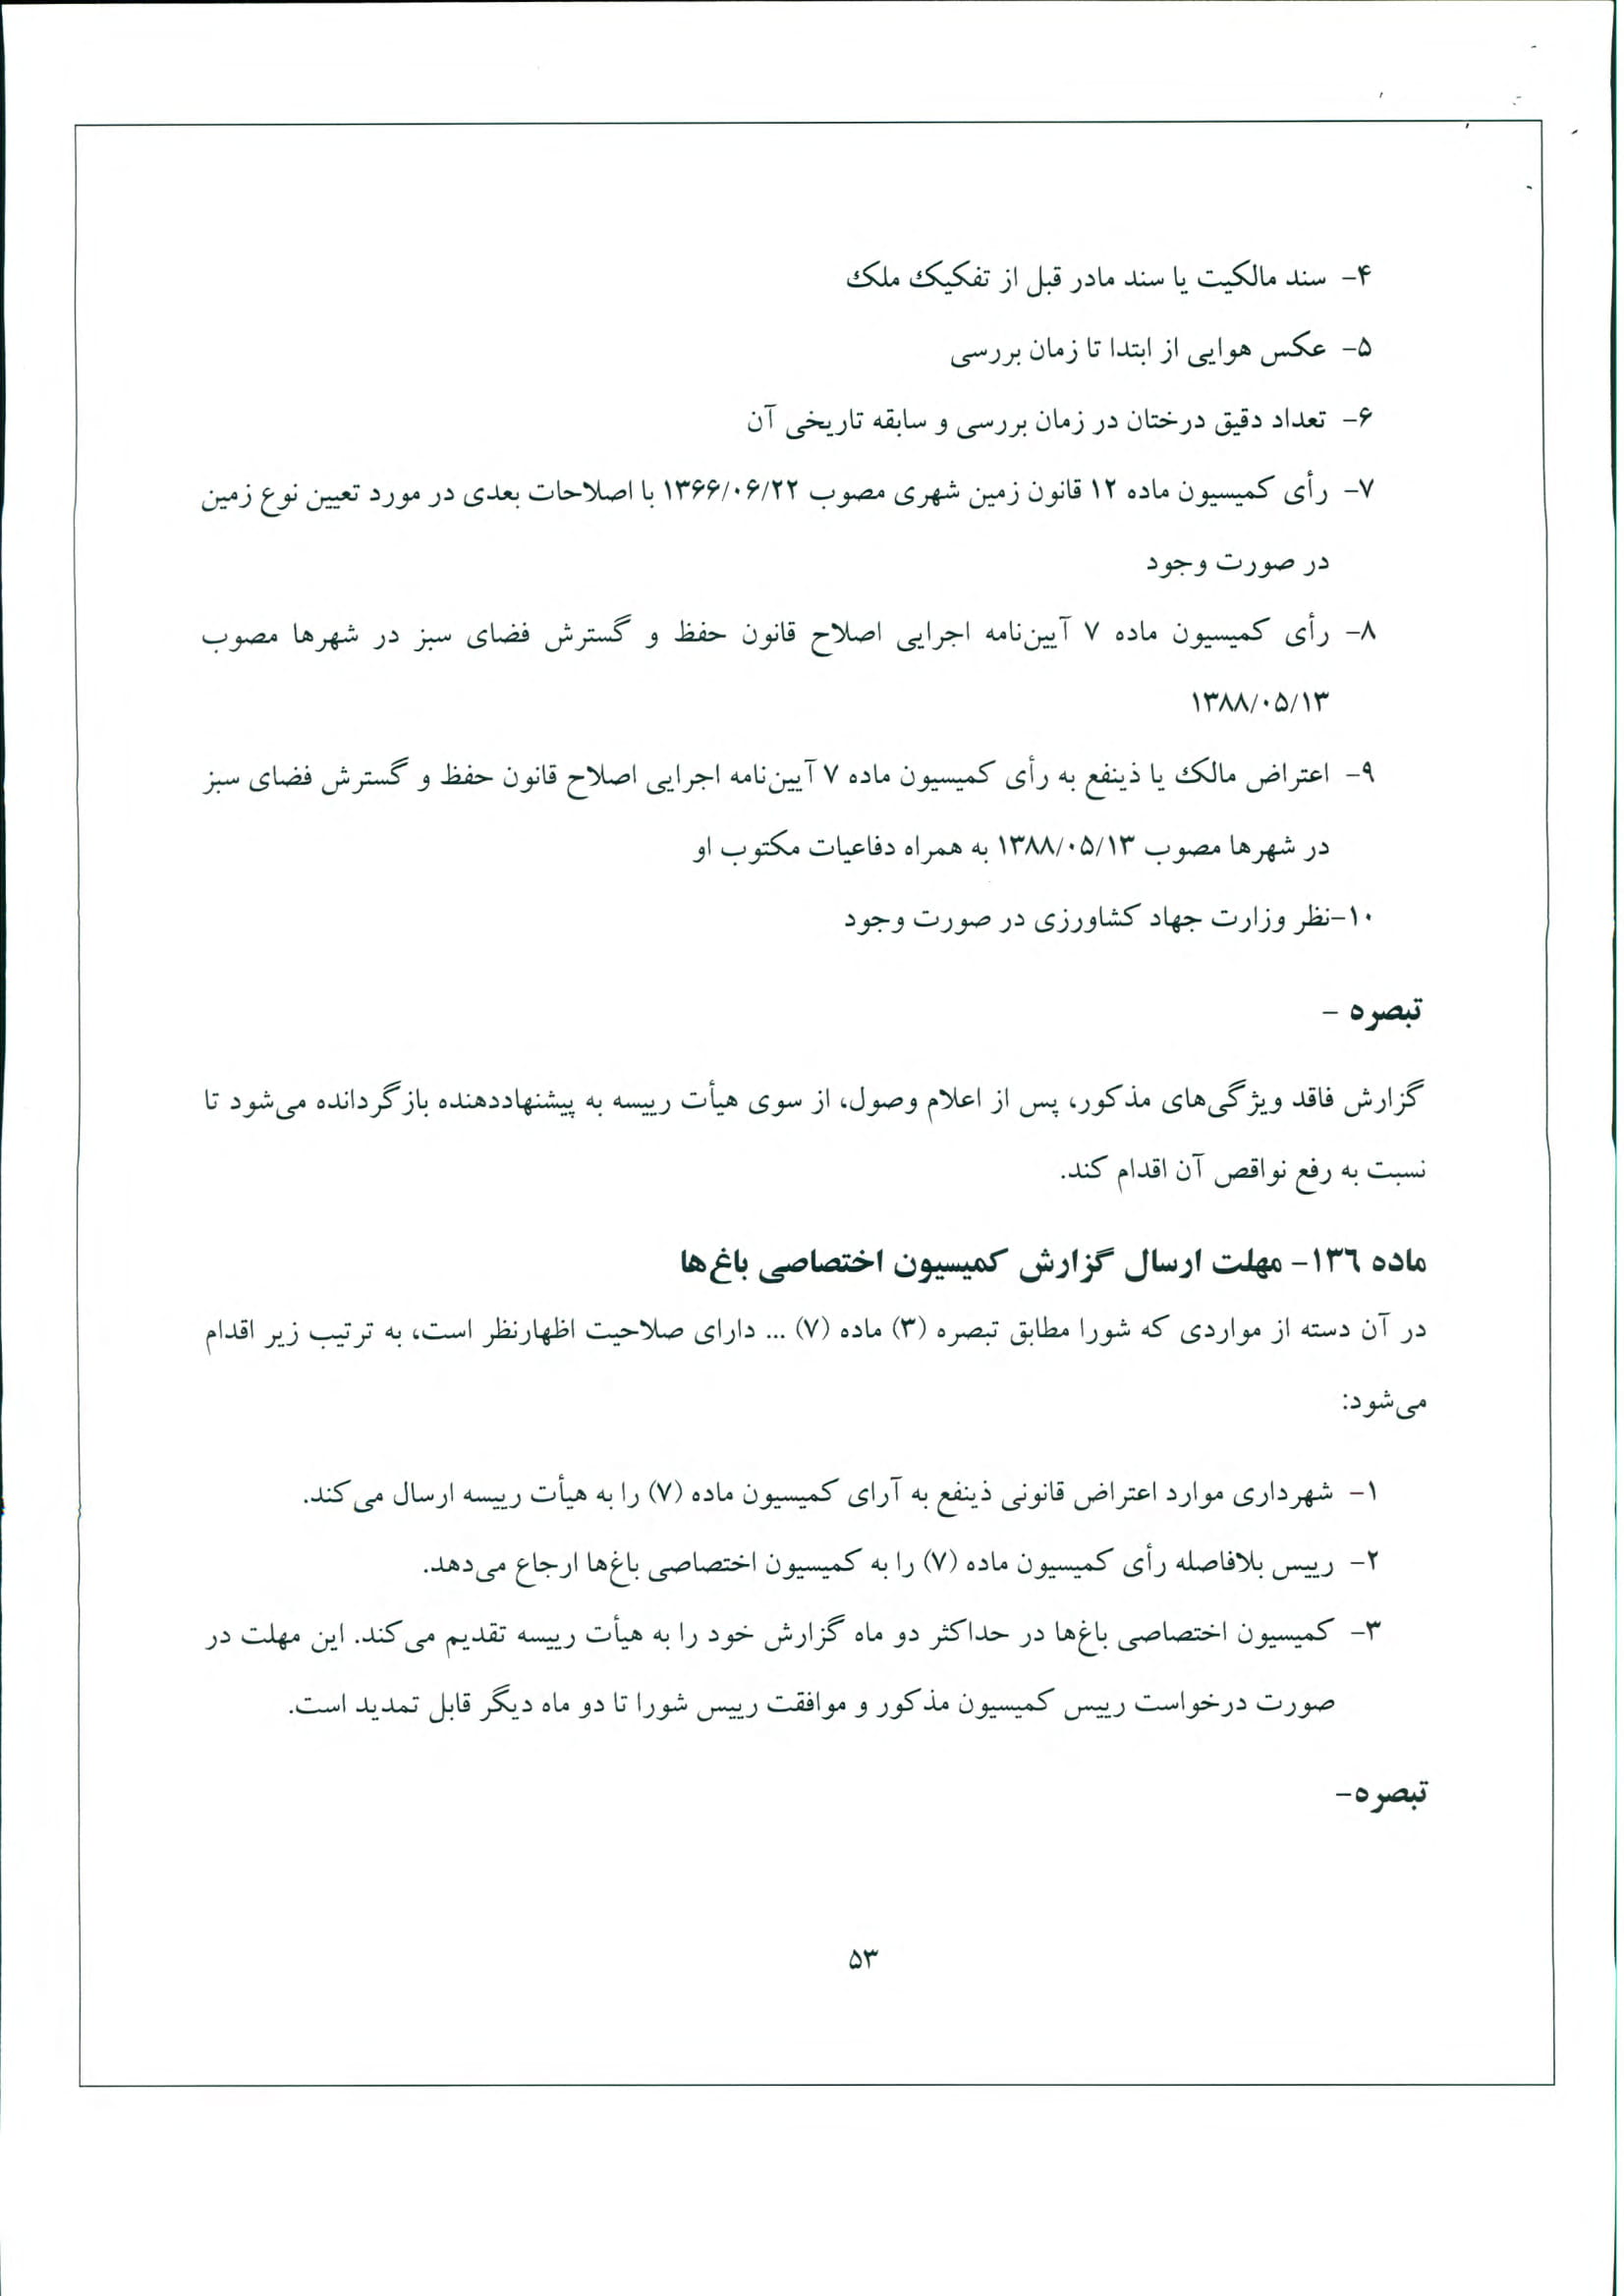 ۴- سند مالکیت یا سند مادر قبل از تفکیک ملک
۵- عکس هوایی از ابتدا تا زمان بررسی
۶- تعداد دقیق درختان در زمان بررسی و سابقه تاریخی آن
۷- رأی کمیسیون ماده ۱۲ قانون زمین شهری مصوب ۱۳۶۶/۰۶/۲۲ با اصلاحات بعدی در مورد تعیین نوع زمین
در صورت وجود
۸- رأی کمیسیون ماده ۷ آیین‌نامه اجرایی اصلاح قانون حفظ و گسترش فضای سبز در شهرها مصوب
۱۳۸۸/۰۵/۱۳
۹- اعتراض مالک یا ذینفع به رأی کمیسیون ماده ۷ آیین‌نامه اجرایی اصلاح قانون حفظ و گسترش فضای سبز
در شهرها مصوب ۱۳۸۸/۰۵/۱۳ به همراه دفاعیات مکتوب او
۱۰-نظر وزارت جهاد کشاورزی در صورت وجود
تبصره -
گزارش فاقد ویژگی‌های مذکور، پس از اعلام وصول، از سوی هیأت رییسه به پیشنهاددهنده بازگردانده می‌شود تا
نسبت به رفع نواقص آن اقدام کند.
ماده ۱۳٦- مهلت ارسال گزارش کمیسیون اختصاصی باغ‌ها
در آن دسته از مواردی که شورا مطابق تبصره (۳) ماده (۷) ... دارای صلاحیت اظهارنظر است، به ترتیب زیر اقدام
می‌شود:
۱- شهرداری موارد اعتراض قانونی ذینفع به آرای کمیسیون ماده (۷) را به هیأت رییسه ارسال می‌کند.
۲- رییس بلافاصله رأی کمیسیون ماده (۷) را به کمیسیون اختصاصی باغ‌ها ارجاع می‌دهد.
۳- کمیسیون اختصاصی باغ‌ها در حداکثر دو ماه گزارش خود را به هیأت رییسه تقدیم می‌کند. این مهلت در
صورت درخواست رییس کمیسیون مذکور و موافقت رییس شورا تا دو ماه دیگر قابل تمدید است.
تبصره-
۵۳